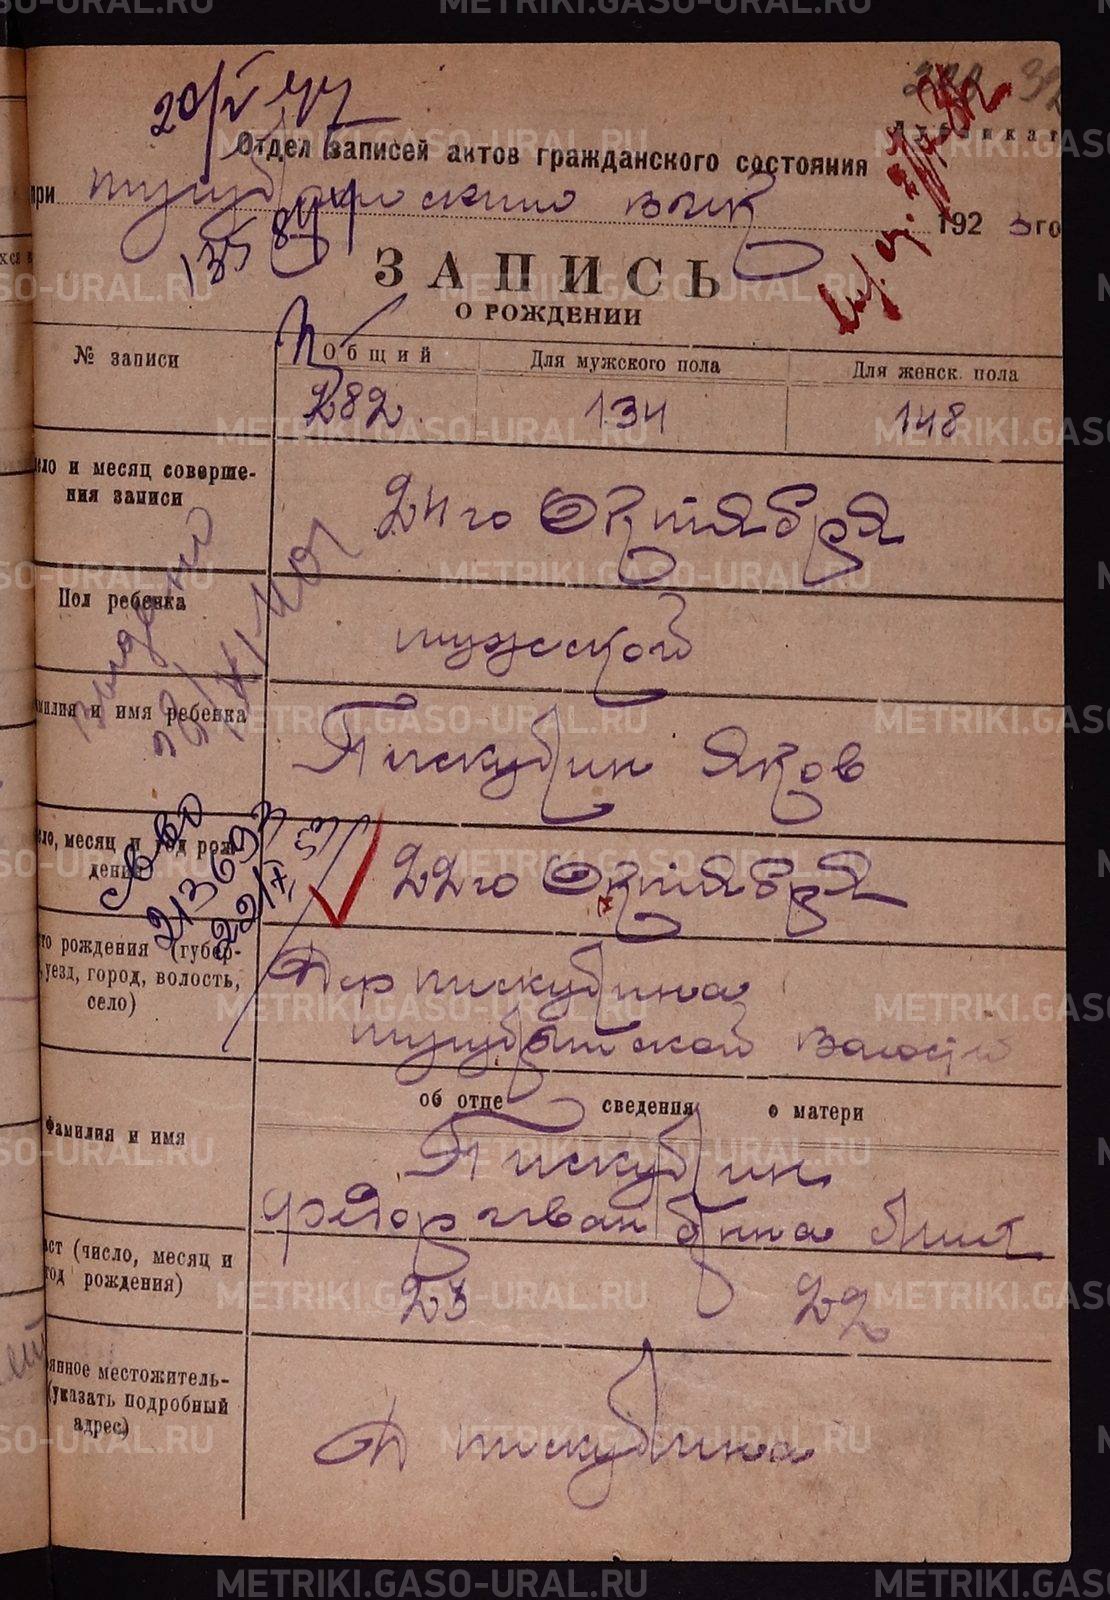 20/V 47
Дубликат
Отдел записей актов гражданского состояния
при вик 1923го
135
ЗАПИСЬ
О РОЖДЕНИИ
№ записи
Общий Для мужского пола Для женск. пола
282 134 148
ло и месяц соверше-
ния записи
24го Октября
Пол ребенка
мужской
милия и имя ребенка
Пискубин Яков
ло, месяц и год рож-
дения
22го Октября
213693
то рождения (губер-
уезд, город, волость,
село)
Дер пискубина
волости
об отце сведения о матери
Фамилия и имя
Пискубин
Федор Иван Анна
ст (число, месяц и
год рождения)
23 22
янное местожитель-
(указать подробный
адрес)
Д пискубина
METRIKI.GASO-URAL.RU